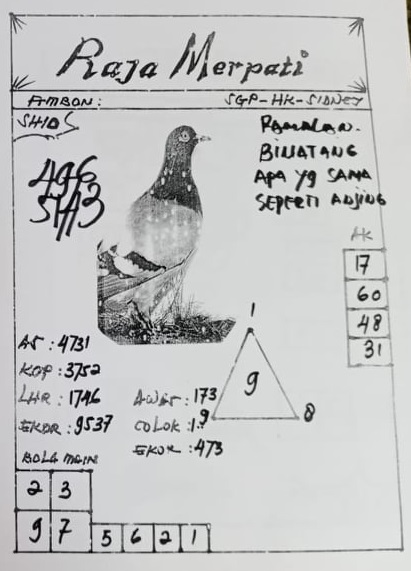 Raja Merpati
AMBON: SGP-HK-SIDNEY
SHIO
RAMALAN.
BINATANG
APA YG SAMA
SEPERTI ANJING
496
5143
AK
17
60
48
31
AS : 4731
KOP : 3752
LHR : 1746
EKOR : 9537
AWAS : 173
COLOK : 1.
EKOR : 473
1
9
9
8
BOLA MAIN
2 3
9 7
5 6 2 1